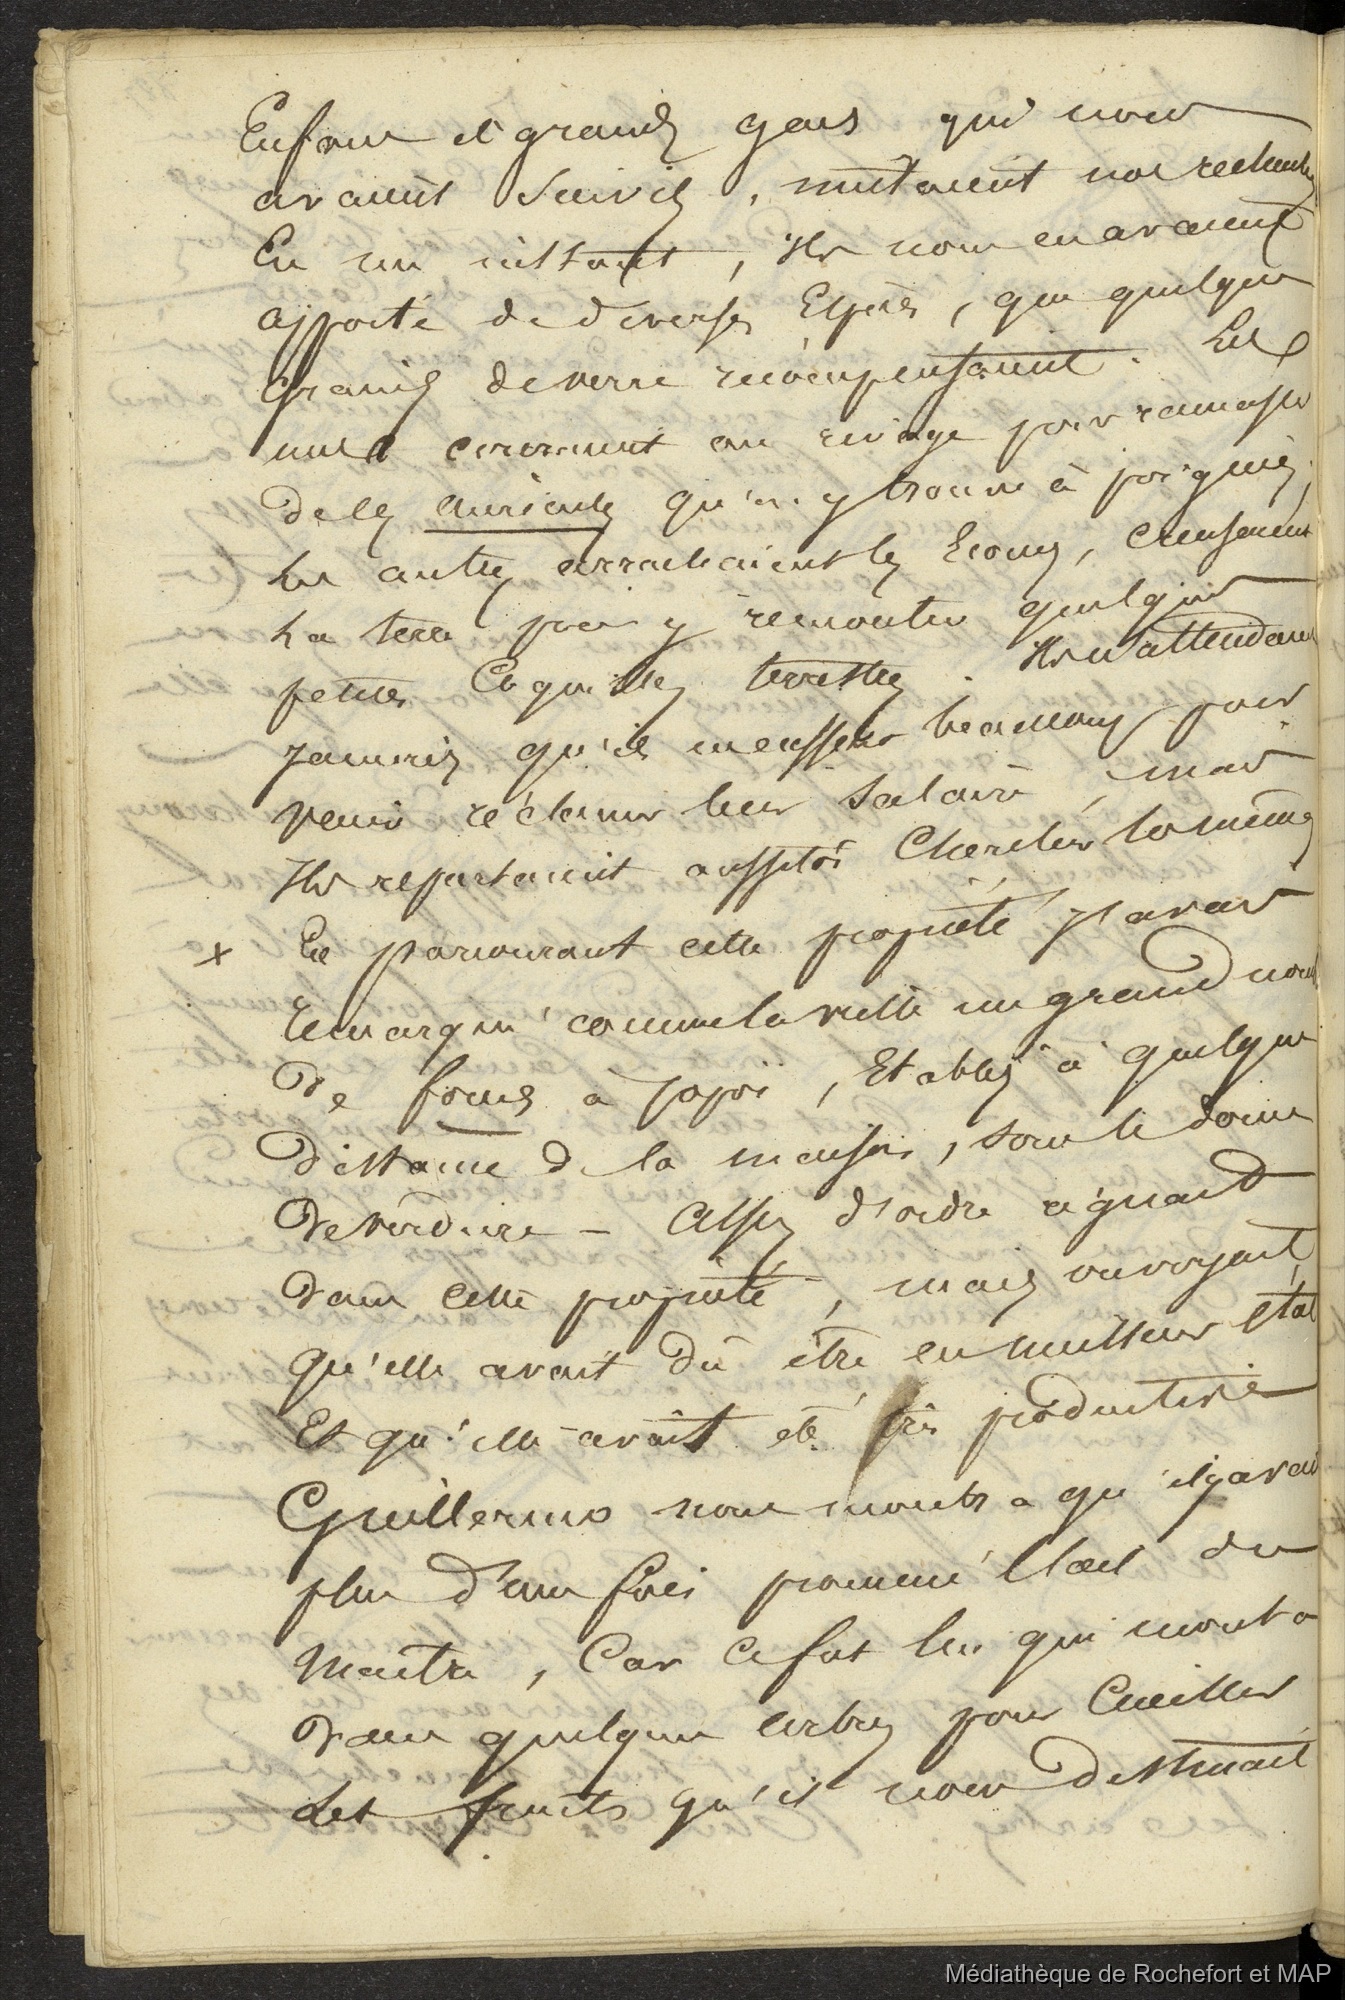 Enfans et grands gens qui nous
avaient suivis, imitaient nos recherches
En un instant, ils nous en avaient
apporté de diverses Espèces, que quelques
grains de verre récompensaient. Les
uns couraient au rivage pour ramasser
de ces auricules qu'on y trouve à poignées,
Les autres arrachaient les Ecorces, creusaient
La terre pour y rencontrer quelques
petites Coquilles terrestres. Ils n'attendaient
jamais qu'ils en eussent beaucoup pour
venir réclamer leur salaire, mais
Ils repartaient aussitôt Chercher les mêmes
x En parcourant cette propriété j'avais
Remarqué comme la veille un grand nomb
De fours à , Etablis à quelque
distance de la maison, sous le dome
De verdure – Assez d'ordre régnait
dans cette propriété, mais on voyait
qu'elle avait dû être en meilleur état
Et qu'elle avait été très productive
Guillermo nous montra qu'il y avait
plus d'une fois promené l'œil du
Maitre, Car ce fut lui qui monta
dans quelques arbres pour Cueillir
des fruits qu'il nous destinait
Médiathèque de Rochefort et MAP